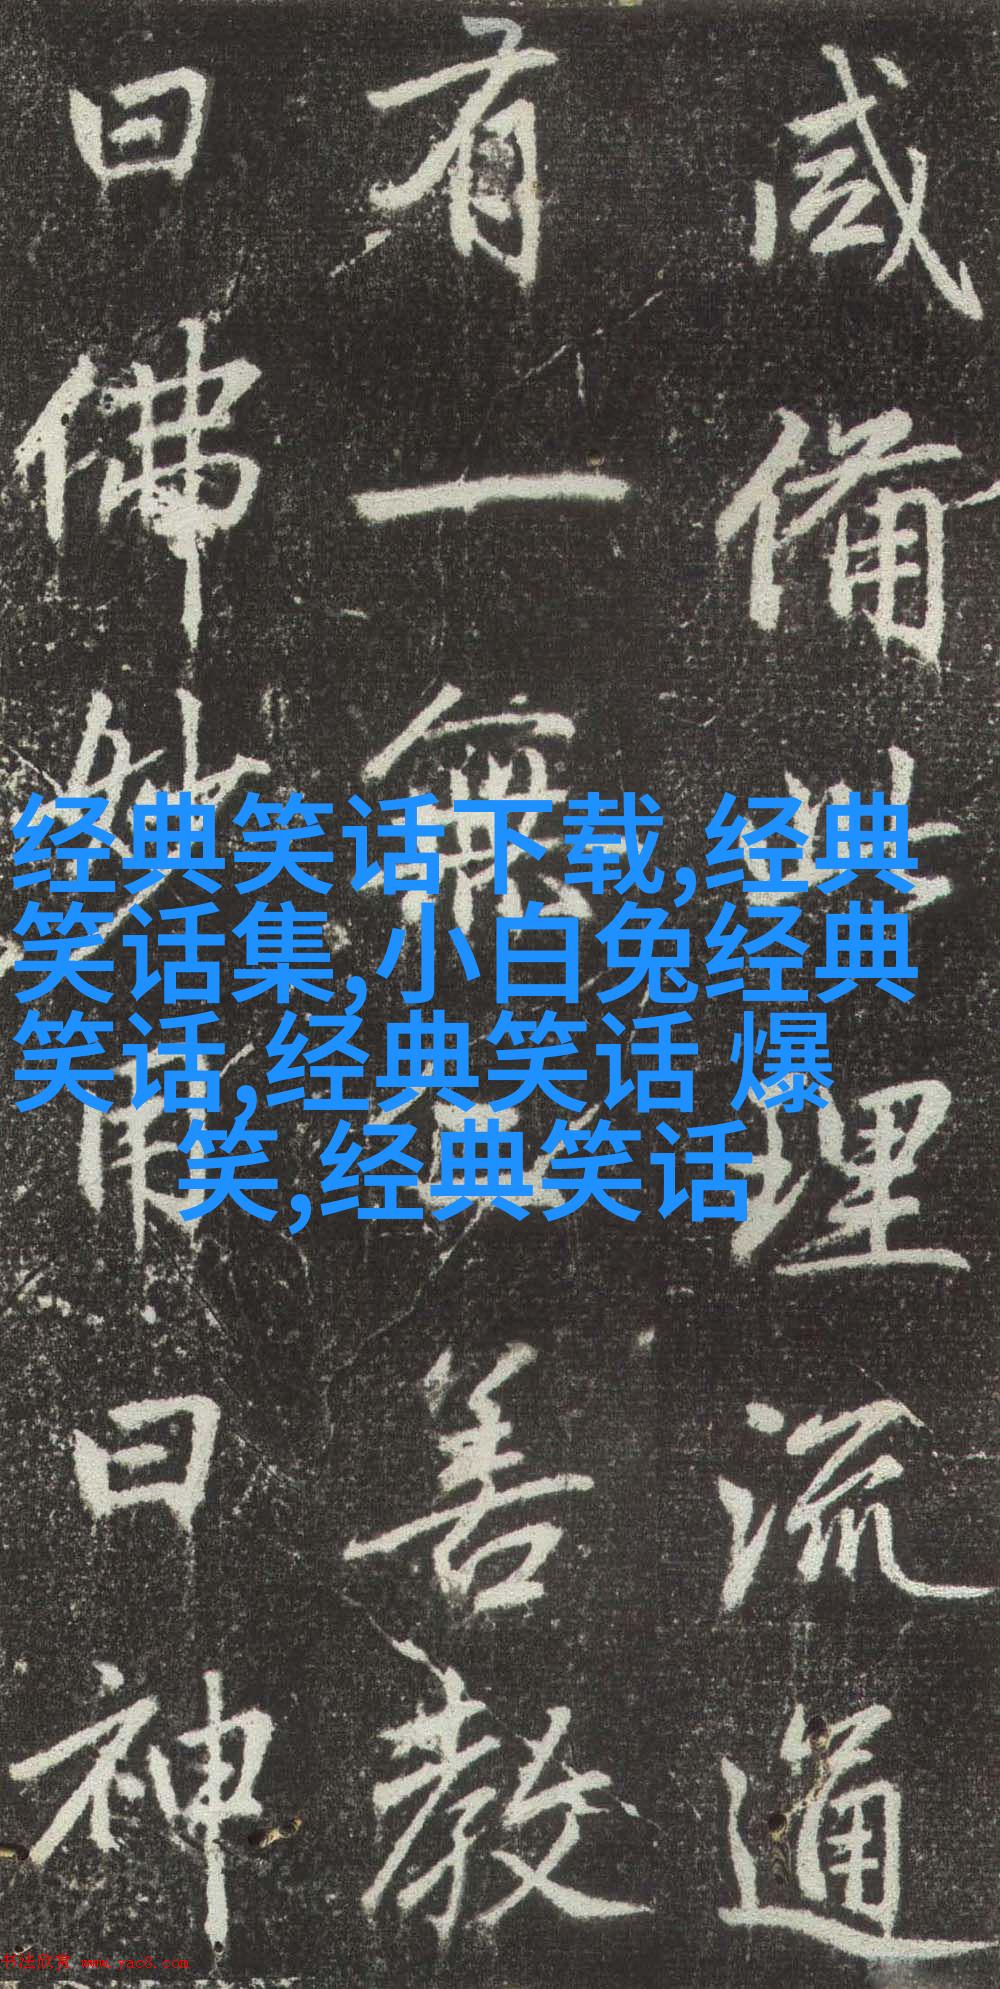 咸備理流通
有一無善教
曰佛妙用曰神
经典笑话下载,经典
笑话集,小白兔经典
笑话,经典笑话 爆
笑,经典笑话
书法欣赏 www.yac8.com